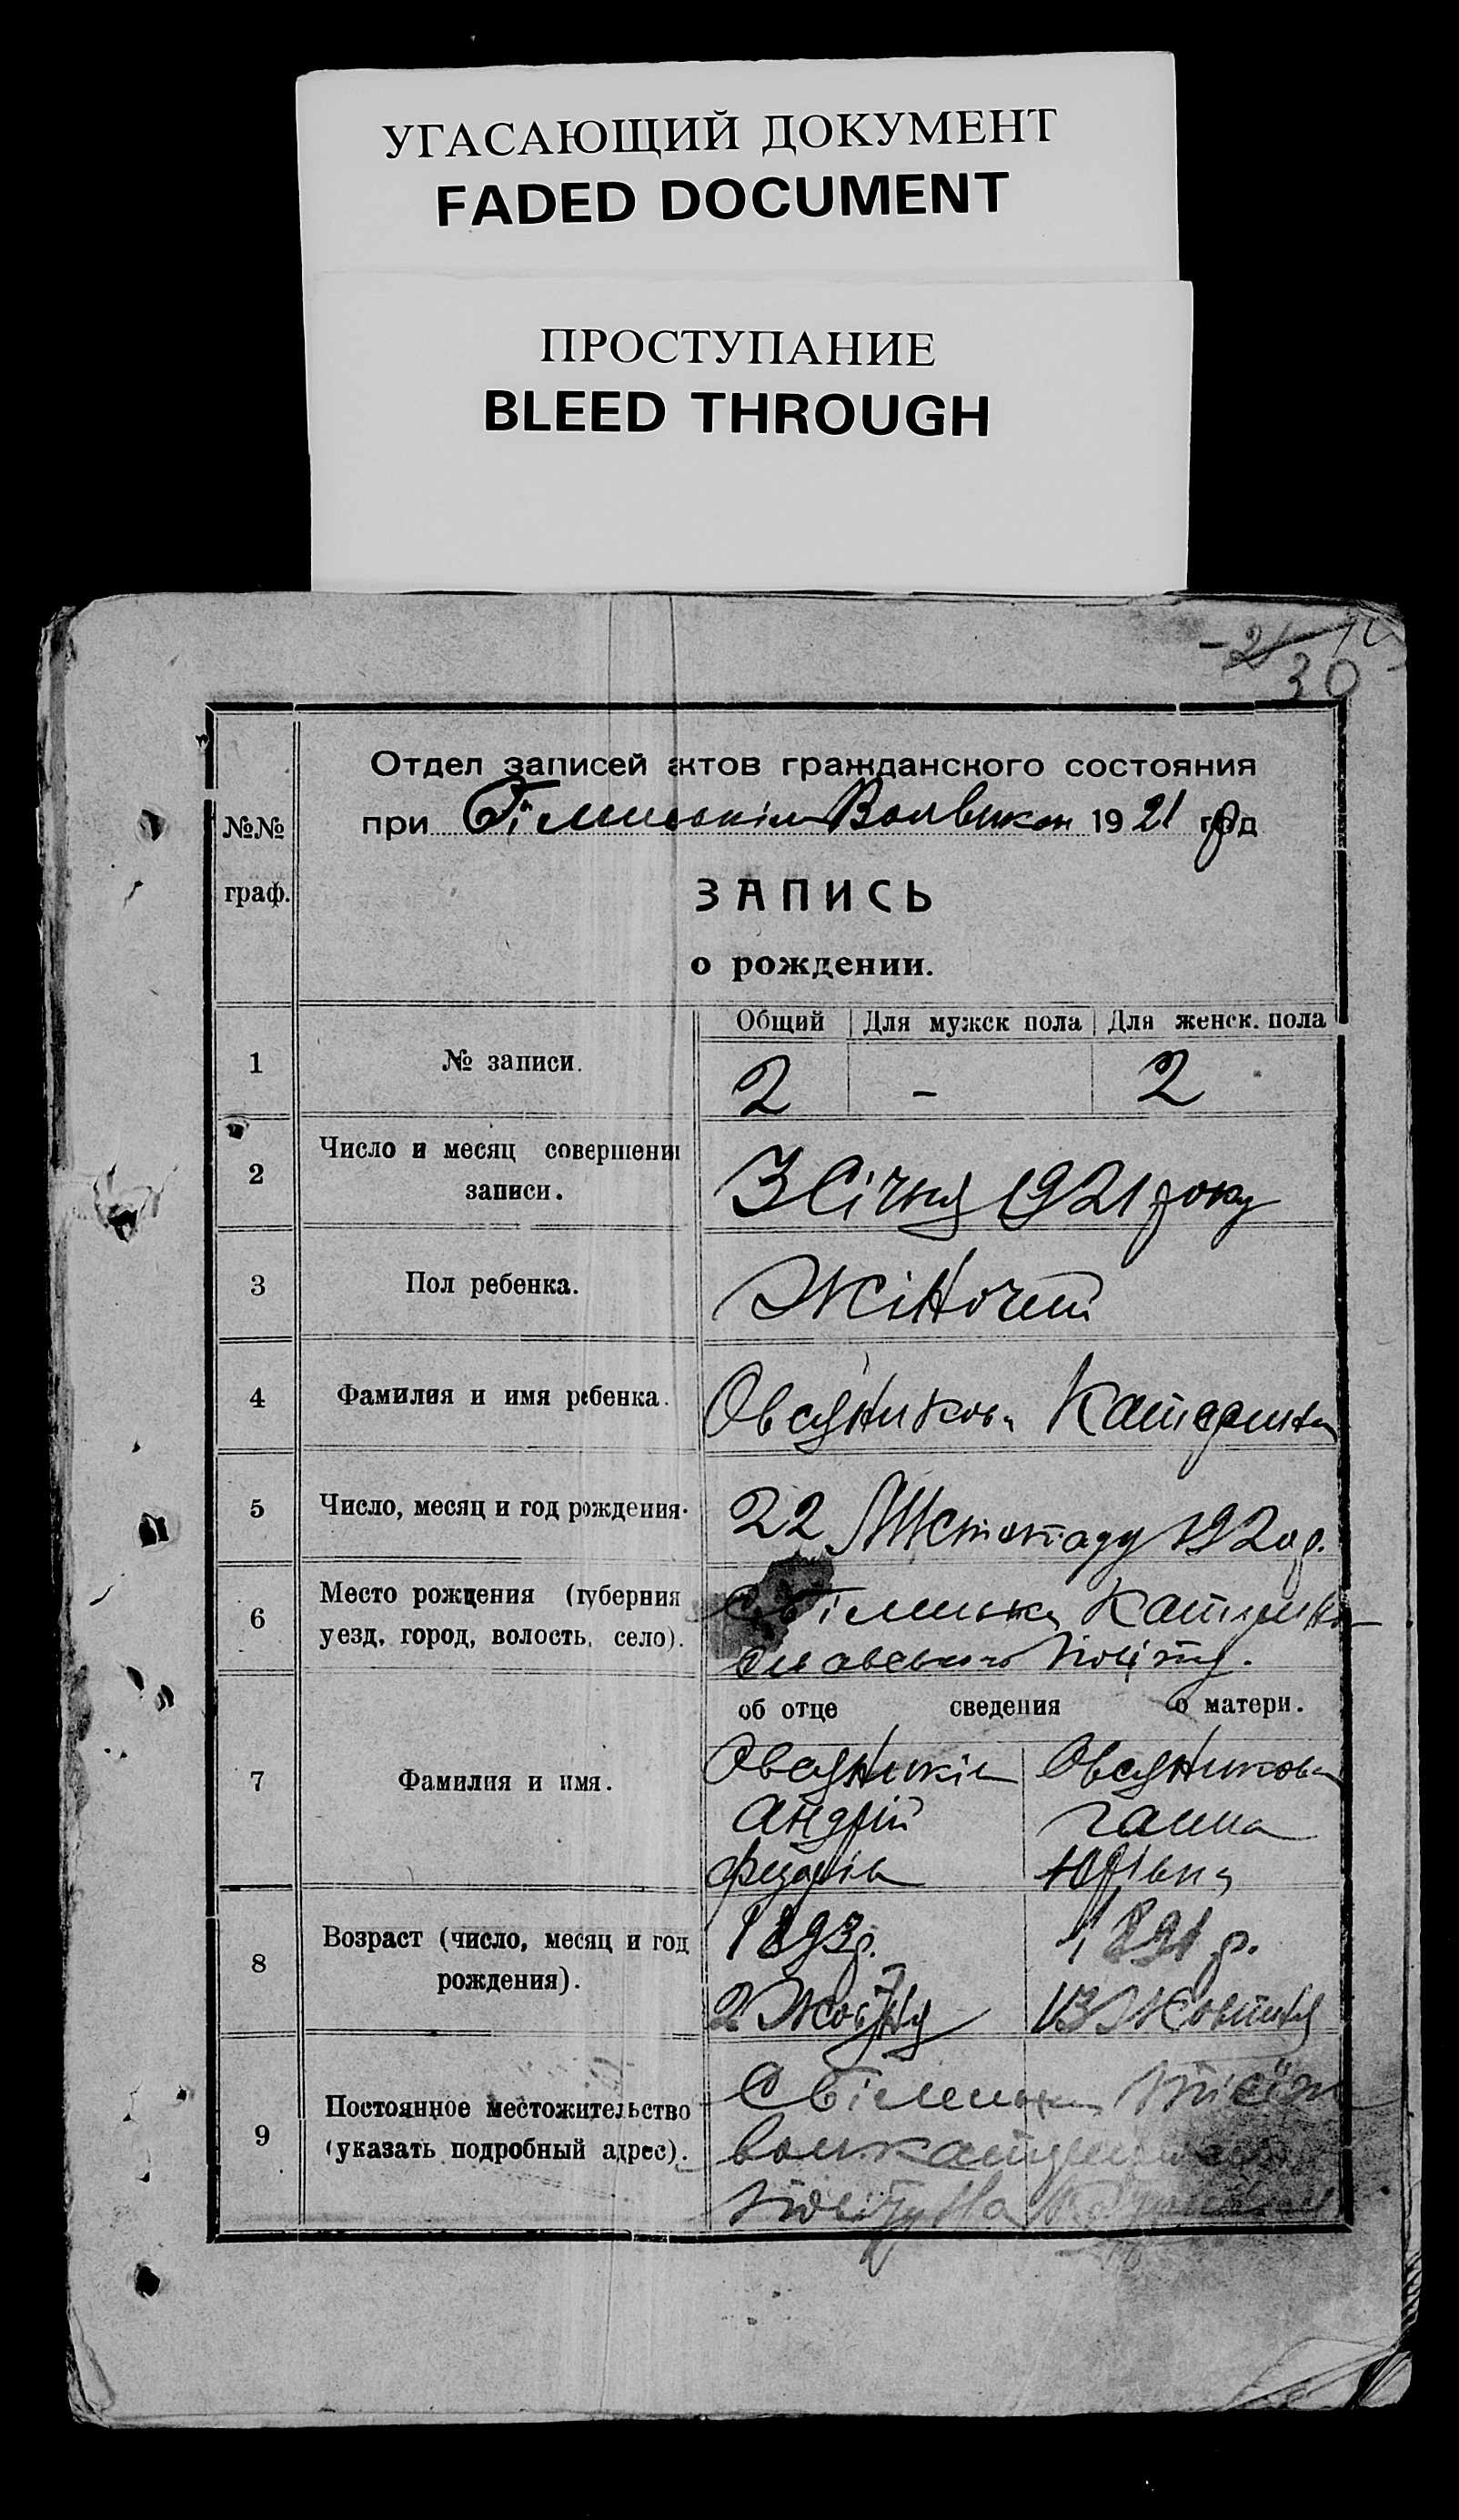 УГАСАЮЩИЙ ДОКУМЕНТ
FADED DOCUMENT
ПРОСТУПАНИЕ
BLEED THROUGH
30
Отдел записей актов гражданского состояния
№№ при 1921 год
граф. ЗАПИСЬ
о рождении.
Общий Для мужск пола Для женск. пола
1 № записи. 2 - 2
2 Число и месяц совершения
записи. 3 Січня 1921 року
3 Пол ребенка. Жіночий
4 Фамилия и имя ребенка. Овсяникова Катерина
5 Число, месяц и год рождения. 22 Листопаду 1920 р.
6 Место рождения (губерния
уезд, город, волость, село). Повіту.
об отце сведения о матери.
7 Фамилия и имя. Овсяников Овсяникова
Андрій Ганна
Федорів Юрівна
8 Возраст (число, месяц и год 1893 р. 1891 р.
рождения). 2 Жовтня 13 Жовтня
9 Постоянное местожительство
(указать подробный адрес).